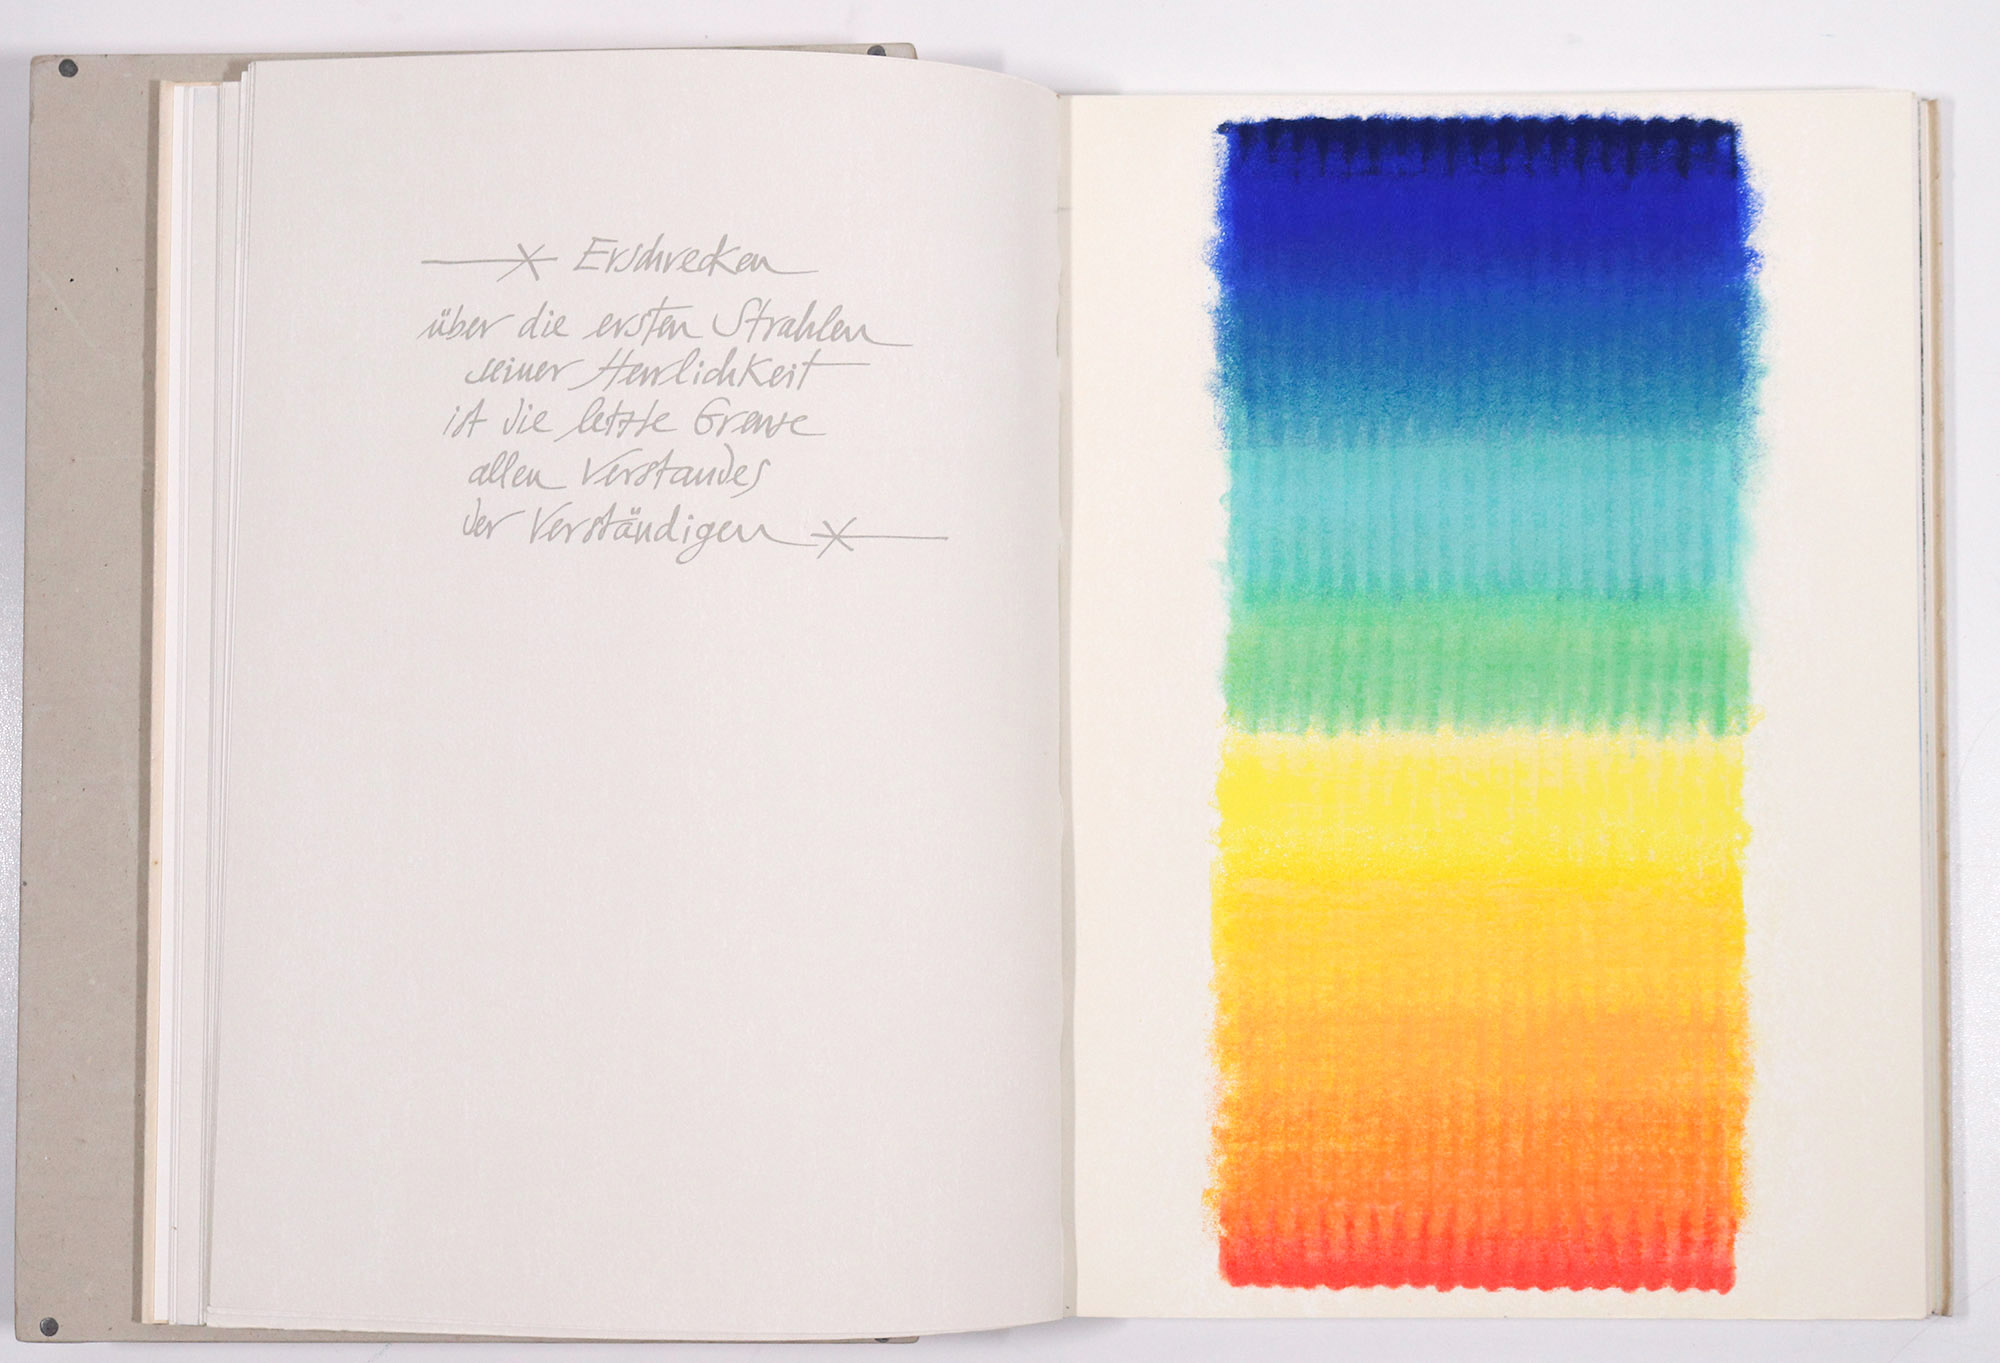 Erschrecken
über die ersten Strahlen
seiner Herrlichkeit
ist die letzte Grenze
allen Verstandes
der Verständigen